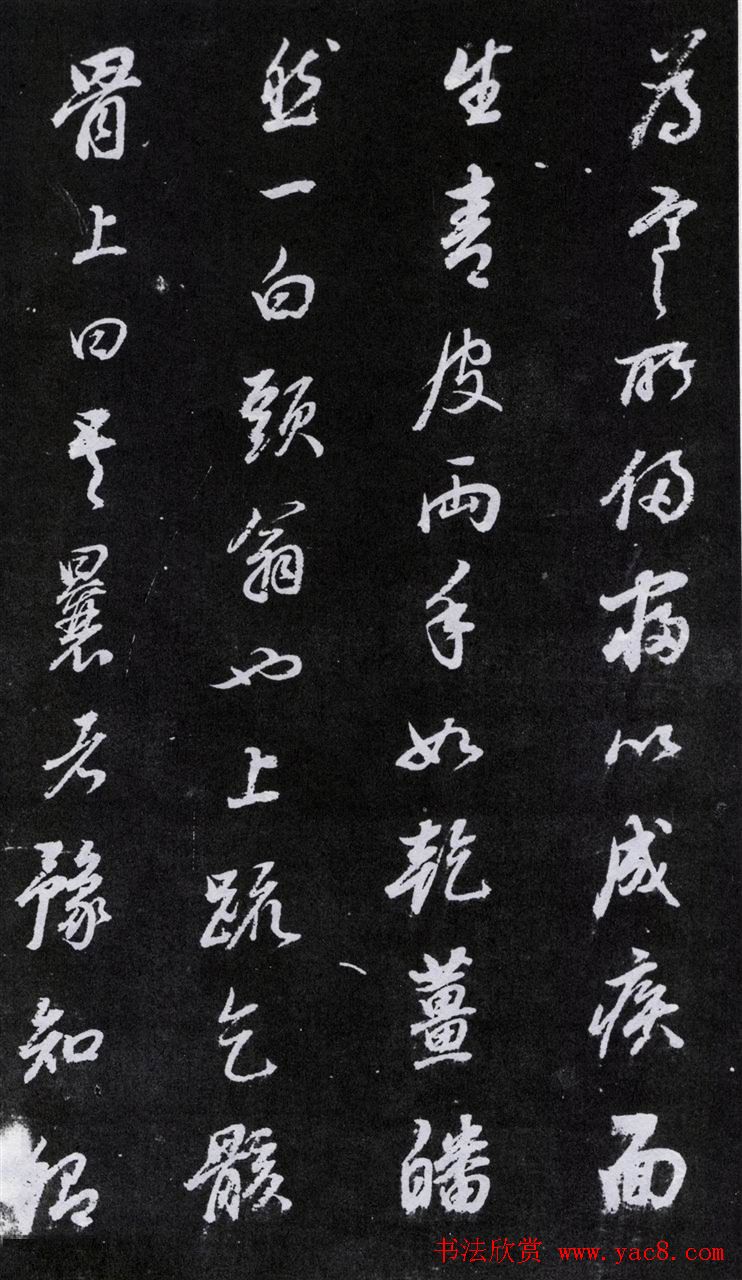 為寒所侵寢以成疾面
生青皮兩手如乾薑皤
然一白頭翁也上疏乞骸
骨上曰曩者豫知卿
书法欣赏 www.yac8.com